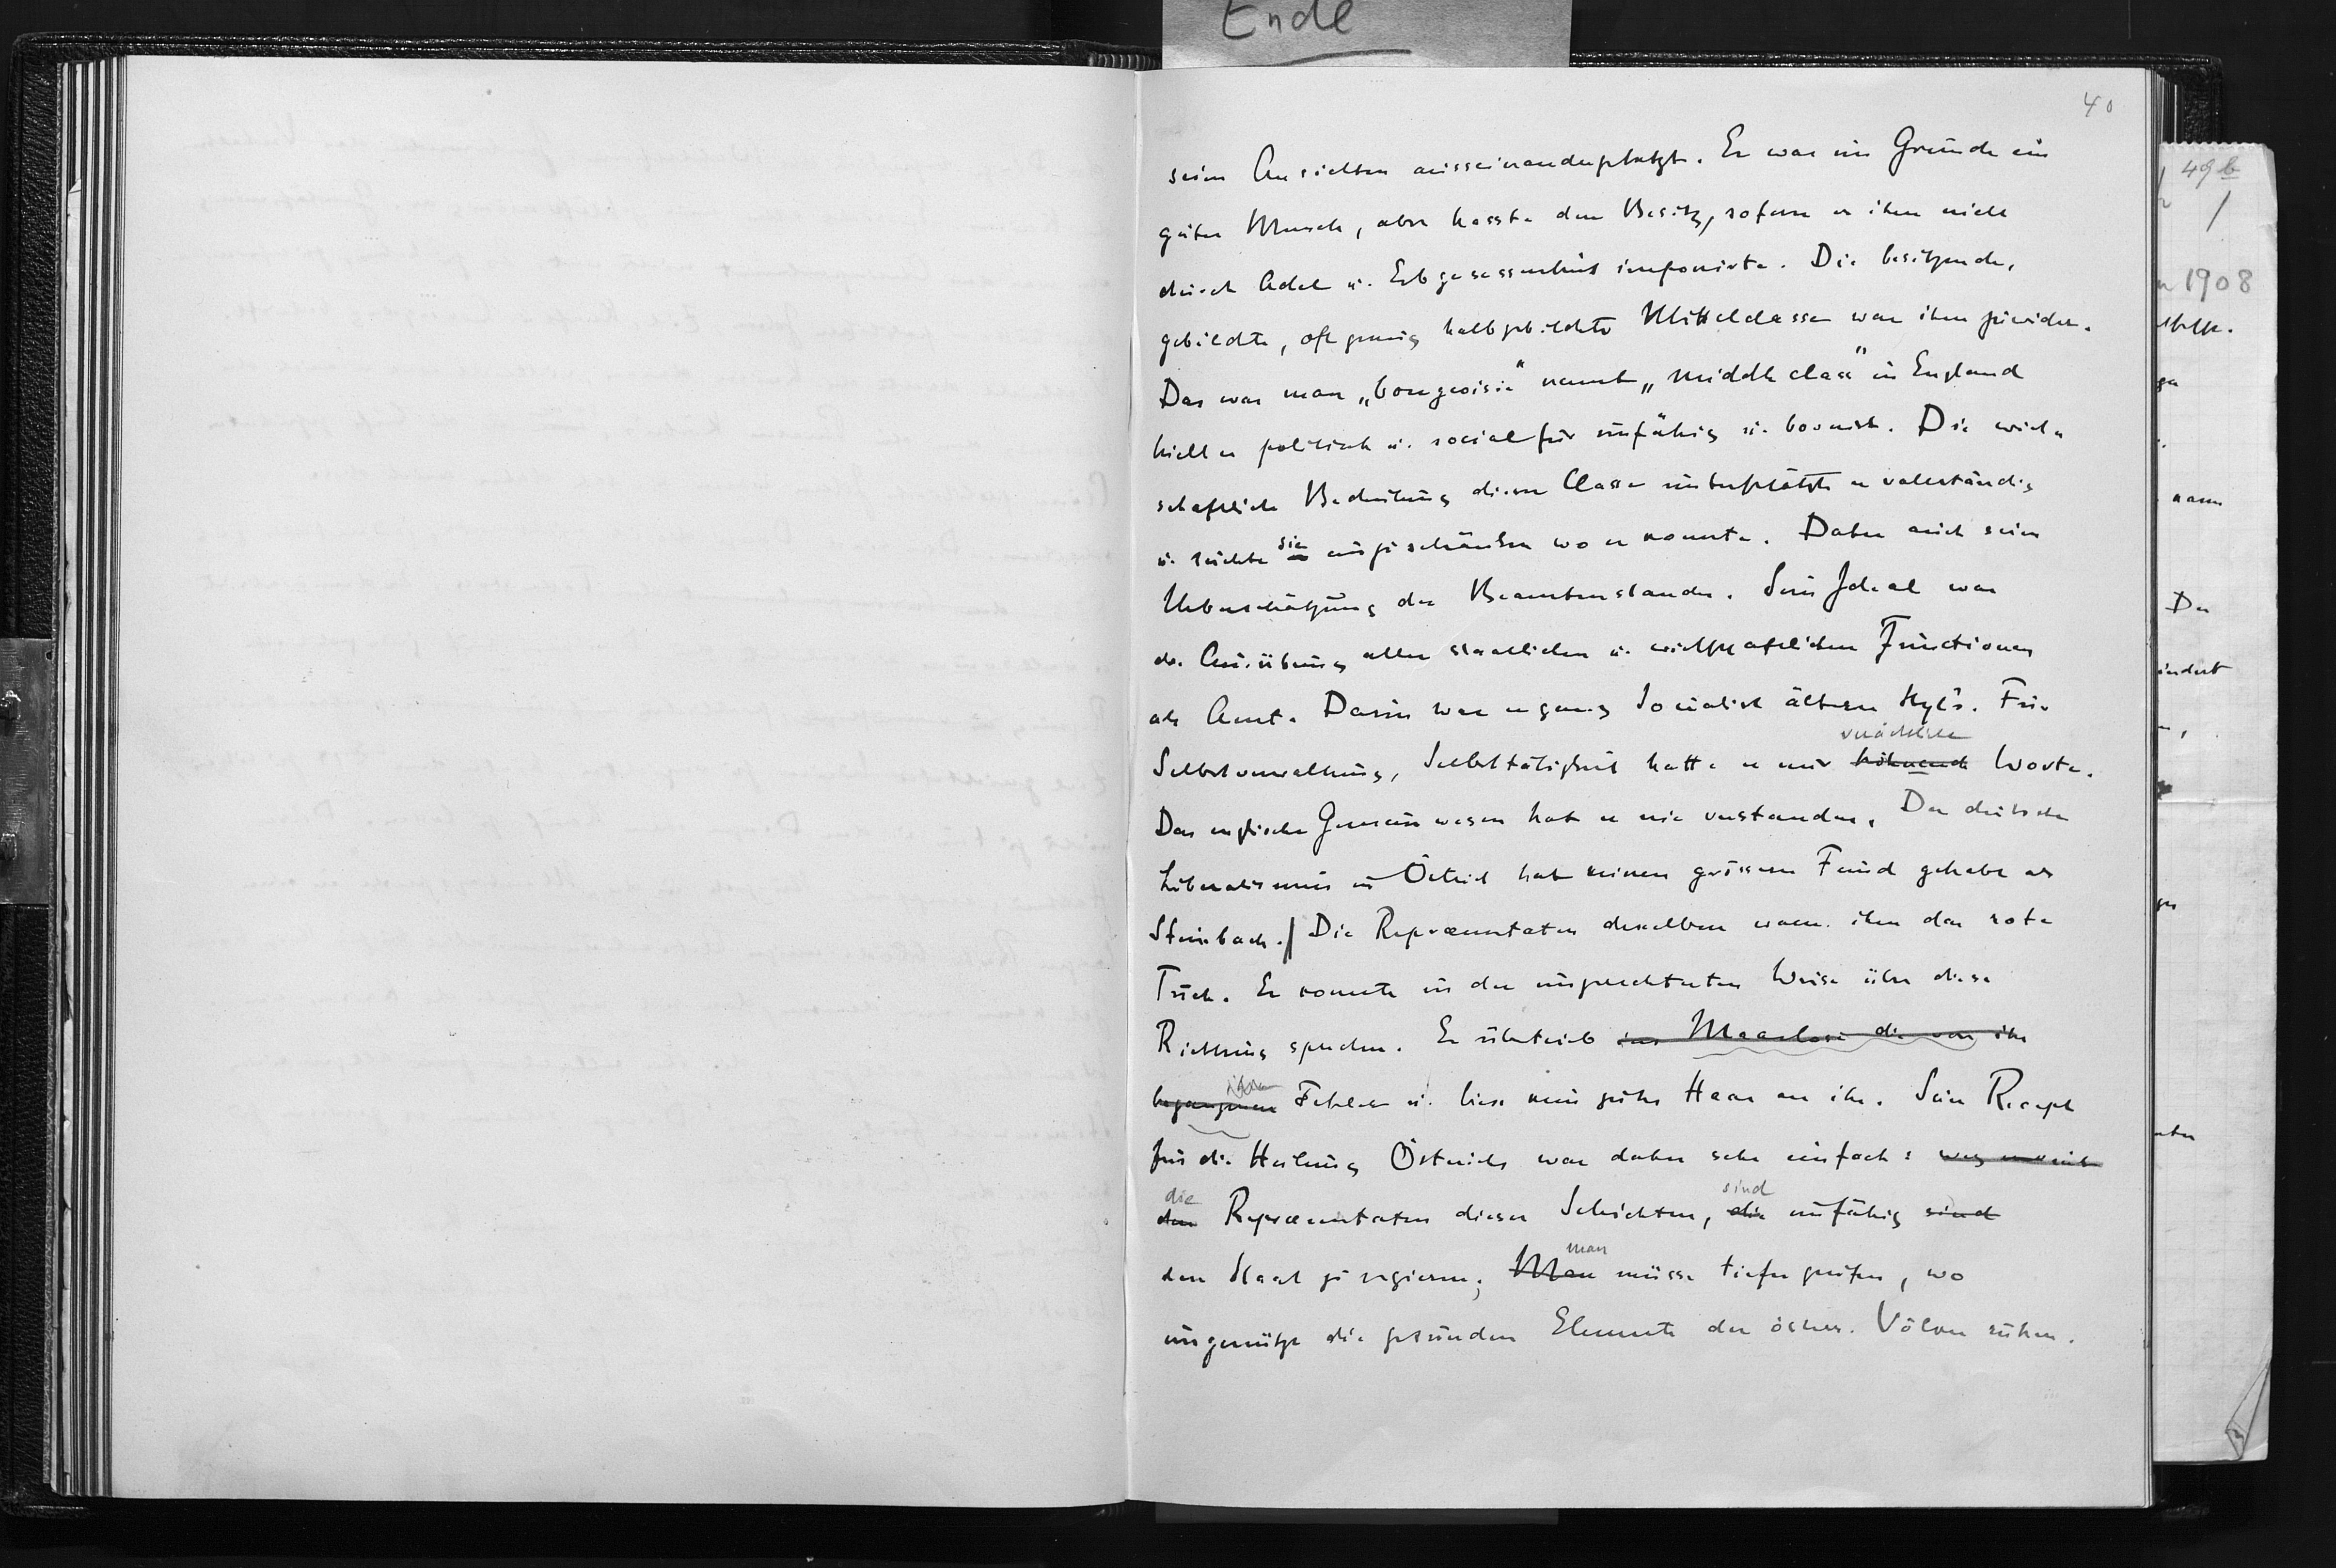 Ende
40
seine Ansichten auseinandergesetzt. Er war im Grunde ein
guter Mensch, aber hasste den Besitz, soferne er ihm nicht
durch Adel u. Erbgesessenheit imponirte. Die besitzende,
gebildete, oft genug halbgebildete Mittelclasse war ihm zuwider.
Das was man „bourgeoisie" nennt „middle class" in England
hielt er politisch u. social für unfähig u. bornirt. Die wirt-
schaftliche Bedeutung dieser Classe unterschätzte er vollständig
u. suchte sie einzuschränken wo er konnte. Daher auch seine
Ueberschätzung des Beamtenstandes. Sein Ideal war
die Ausübung aller staatlichen u. wirthschaftlichen Functionen
als Amt. Darin war er ganz Socialist ältern Styls. Für
verächtliche
Selbstverwaltung, Selbsttätigkeit hatte er nur höhnende Worte.
Das englische Gemeinwesen hat er nie verstanden. Der deutsche
Liberalismus in Östreich hat keinen grössern Feind gehabt als
Steinbach. Die Repræsentanten desselben waren ihm das rote
Tuch. Er konnte in der ungerechtesten Weise über diese
Richtung sprechen. Er übertrieb ins Maaslose die von ihr
ihre
begangenen Fehler u. liess kein gutes Haar an ihr. Sein Recept
für die Heilung Östreichs war daher sehr einfach: weg mit
die sind
den Repræsentanten dieser Schichten, die unfähig sind
man
den Staat zu regieren; Man müsse tiefer greifen, wo
ungenützt die gesunden Elemente der österr. Völker ruhen.
49b
1908
kann
Der
indert